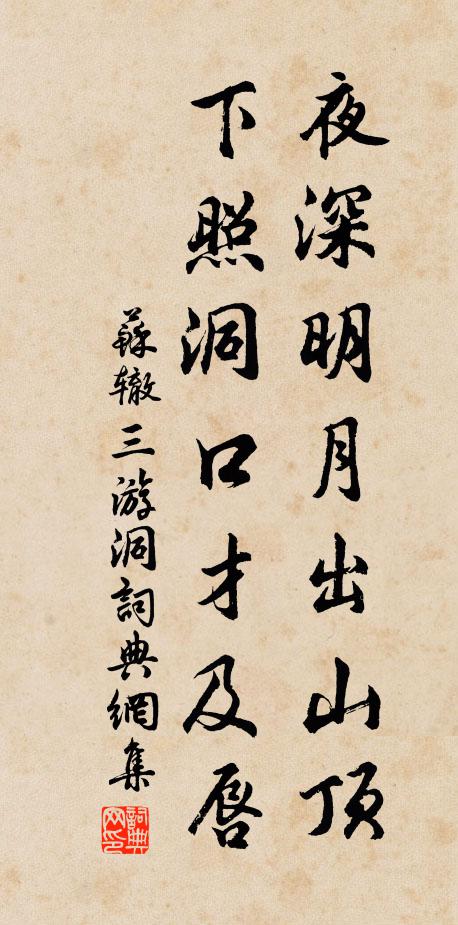 夜深明月出山顶
下照洞口才及唇
蘇辙三游洞詞典網集
詞典网印